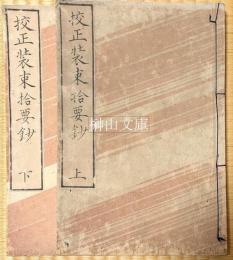 校正装束拾要鈔 上
校正装束拾要鈔 下
榊山文庫